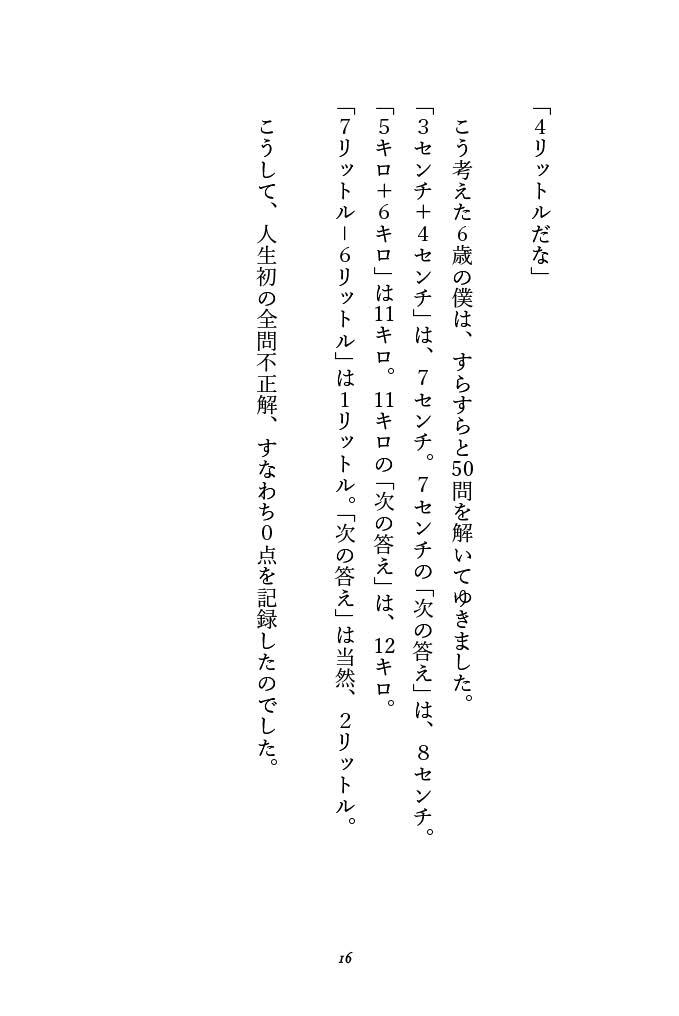 「4リットルだな」
こう考えた6歳の僕は、すらすらと50問を解いてゆきました。
「3センチ＋4センチ」は、7センチ。7センチの「次の答え」は、8センチ。
「5キロ＋6キロ」は11キロ。11キロの「次の答え」は、12キロ。
「7リットル－6リットル」は1リットル。「次の答え」は当然、2リットル。
こうして、人生初の全問不正解、すなわち0点を記録したのでした。
16